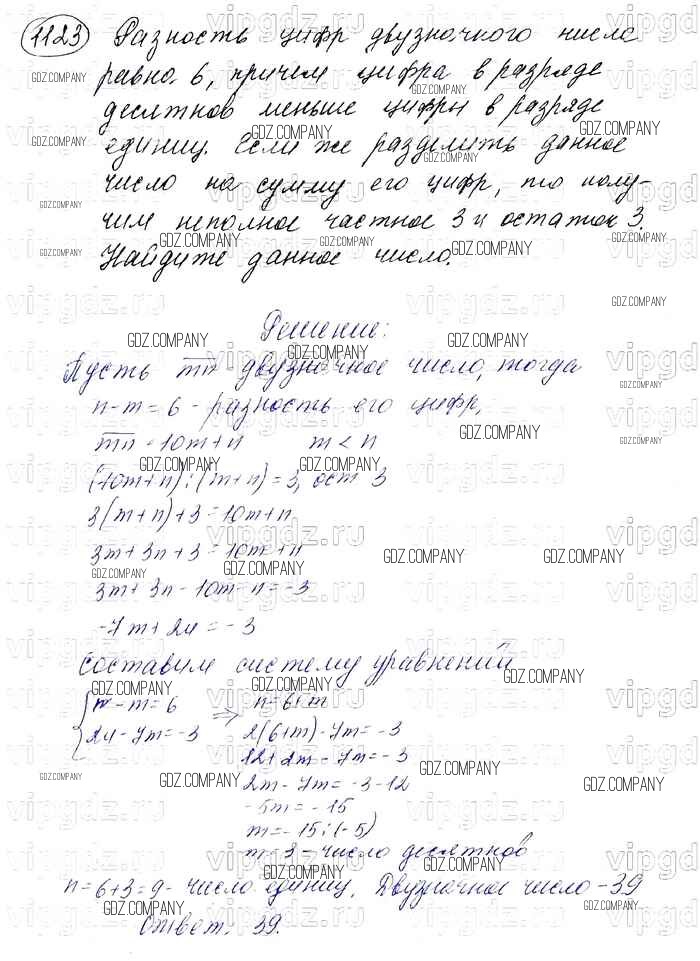 1123 Разность цифр двузначного числа
равно 6, причем цифра в разряде
десятков меньше цифры в разряде
единиц. Если же разделить данное
число на сумму его цифр, то полу-
чим неполное частное 3 и остаток 3.
Найдите данное число.
Решение:
Пусть mn - двузначное число, тогда
n - m = 6 - разность его цифр,
mn = 10m + n m < n
(10m + n) : (m + n) = 3, ост 3
3(m + n) + 3 = 10m + n
3m + 3n + 3 = 10m + n
3m + 3n - 10m - n = -3
-7m + 2n = -3
Составим систему уравнений
n - m = 6 ⇒ n = 6 + m
2n - 7m = -3 2(6 + m) - 7m = -3
12 + 2m - 7m = -3
2m - 7m = -3 - 12
-5m = -15
m = -15 : (-5)
m = 3 - число десятков
n = 6 + 3 = 9 - число единиц. Двузначное число - 39
Ответ: 39.